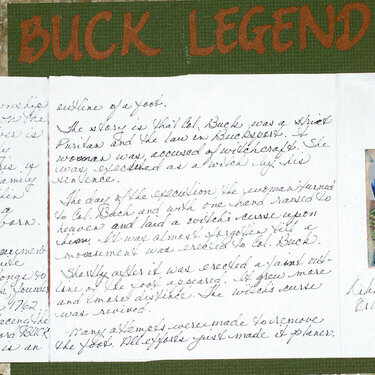 BUCK LEGEND
onship
on the
ver is
is
amily
a
born.
ment
ongs to
founder
1762.
acing the
ord BUCK
is an
outline of a foot.
The story is that Col. Buck was a strict
Puritan and the law in Bucksport. A
woman was accused of witchcraft. She
was executed as a witch by his
sentence.
The day of the execution the woman turned
to Col. Buck and with one hand raised to
heaven and laid a witch's curse upon
him. It was almost forgotten till a
monument was erected to Col. Buck.
Shortly after it was erected a faint out-
line of the foot appeared. It grew more
and more distinct. The witch's curse
was revived.
Many attempts were made to remove
the foot. All efforts just made it plainer.